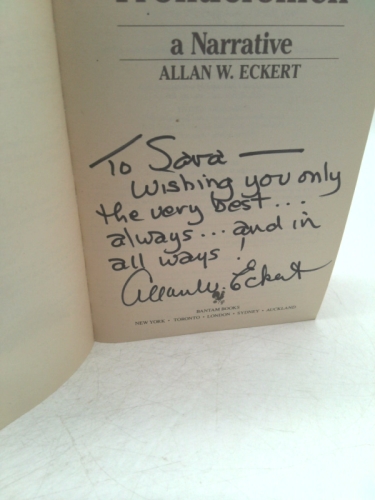 a Narrative
ALLAN W. ECKERT
To Sara —
Wishing you only
the very best...
always... and in
all ways!
Allan W. Eckert
BANTAM BOOKS
NEW YORK • TORONTO • LONDON • SYDNEY • AUCKLAND